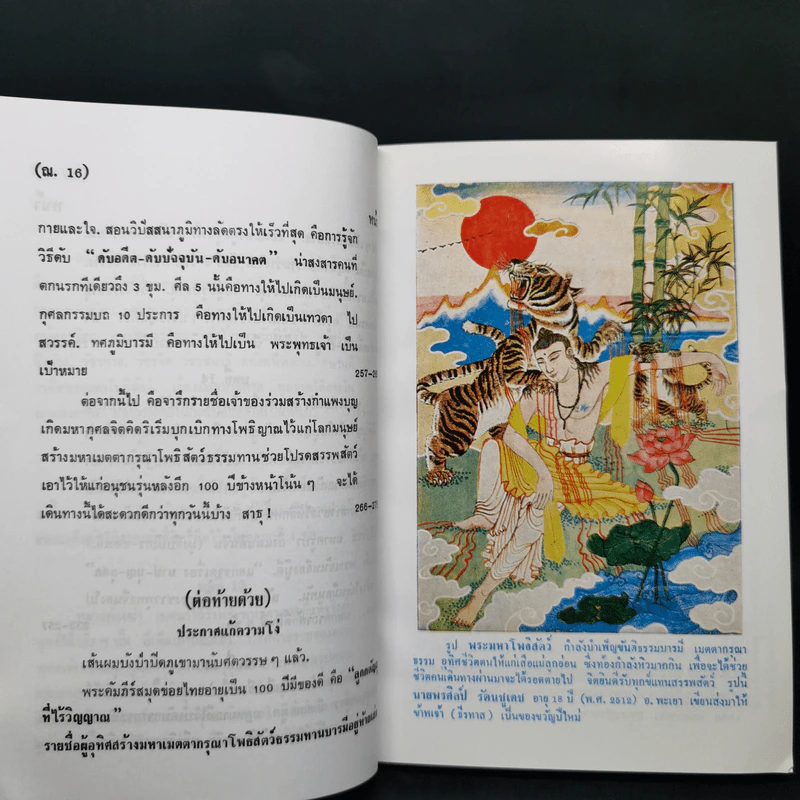 (ฌ. 16)
หน้
กายและใจ. สอนวิปัสสนาภูมิทางลัดตรงให้เร็วที่สุด คือการรู้จัก
วิธีดับ “ดับอดีต-ดับปัจจุบัน-ดับอนาคต” น่าสงสารคนที่
ตกนรกทีเดียวถึง 3 ขุม. ศีล 5 นั้นคือทางให้ไปเกิดเป็นมนุษย์.
กุศลกรรมบถ 10 ประการ คือทางให้ไปเกิดเป็นเทวดา ไป
สวรรค์. ทศภูมิบารมี คือทางให้ไปเป็น พระพุทธเจ้า เป็น
เป้าหมาย 257-2
ต่อจากนี้ไป คือจารึกรายชื่อเจ้าของร่วมสร้างกำแพงบุญ
เกิดมหากุศลจิตคิดริเริ่มบุกเบิกทางโพธิญาณไว้แก่โลกมนุษย์
สร้างมหาเมตตากรุณาโพธิสัตว์ธรรมทานช่วยโปรดสรรพสัตว์
เอาไว้ให้แก่อนุชนรุ่นหลังอีก 100 ปีข้างหน้าโน้น ๆ จะได้
เดินทางนี้ได้สะดวกดีกว่าทุกวันนี้บ้าง สาธุ ! 266-2
(ต่อท้ายด้วย)
ประกาศแก้ความโง่
เส้นผมบังบำปิดภูเขามานับศตวรรษ ๆ แล้ว.
พระคัมภีร์สมุดข่อยไทยอายุเป็น 100 ปีมีของดี คือ “ลูกกตัญญู
ที่ไร้วิญญาณ”
รายชื่อผู้อุทิศสร้างมหาเมตตากรุณาโพธิสัตว์ธรรมทานบารมีอยู่ท้ายเล่ม
รูป พระมหาโพธิสัตว์ กำลังบำเพ็ญขันติธรรมบารมี เมตตากรุณา
ธรรม อุทิศชีวิตตนให้แก่เสือแม่ลูกอ่อน ซึ่งท้องกำลังหิวมากกิน เพื่อจะได้ช่วย
ชีวิตคนเดินทางผ่านมาจะได้รอดตายไป จิตยินดีรับทุกข์แทนสรรพสัตว์ รูปนี้
นายพรศิลป์ รัตนชูเดช อายุ 18 ปี (พ.ศ. 2512) อ. พะเยา เขียนส่งมาให้
ข้าพเจ้า (ธีรทาส) เป็นของขวัญปีใหม่